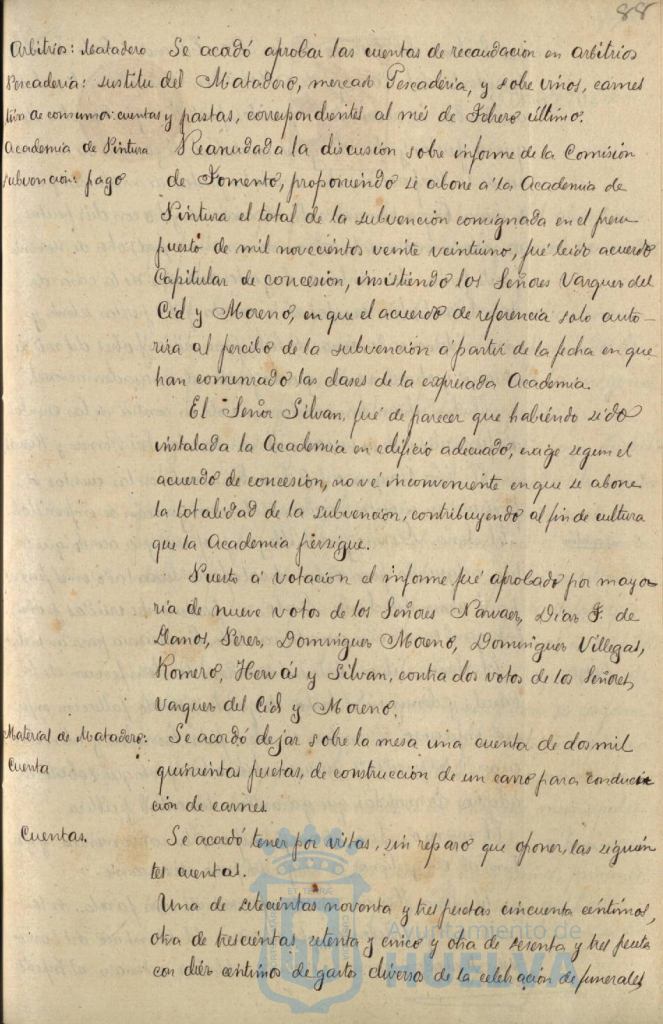 88
Arbitrios: Matadero
Pescaderia: sustitu
ción de consumos: cuentas
Se acordó aprobar las cuentas de recaudación en arbitrios
del Matadero, mercado Pescaderia, y sobre vinos, carnes
y pastas, correspondientes al més de Febrero último.
Academia de Pintura
subvención: pago
Reanudada la discusión sobre informe de la Comisión
de Fomento, proponiendo se abone á la Academia de
Pintura el total de la subvención consignada en el presu
puesto de mil novecientos veinte veintiuno, fué leido acuerdo
Capitular de concesión, insistiendo los Señores Vazquez del
Cid y Moreno, en que el acuerdo de referencia solo auto-
riza al percibo de la subvención á partir de la fecha en que
han comenzado las clases de la expresada Academia.
El Señor Silvan, fué de parecer que habiéndo sido
instalada la Academia en edificio adecuado, segun el
acuerdo de concesión, no vé inconveniente en que se abone
la totalidad de la subvención, contribuyendo al fin de cultura
que la Academia persigue.
Puesto á votación el informe fué aprobado por mayo-
ria de nueve votos de los Señores Narvaez, Diaz F. de
Llanos, Perez, Dominguez Moreno, Dominguez Villegas,
Romero, Hervás y Silvan, contra dos votos de los Señores
Vazquez del Cid y Moreno.
Material de Matadero:
Cuenta
Se acordó dejar sobre la mesa una cuenta de dos mil
quinientas pesetas, de construcción de un carro para conduc
ción de carnes.
Cuentas.
Se acordó tener por vistas, sin reparo que oponer, las siguien
tes cuentas.
Una de setecientas noventa y tres pesetas cincuenta céntimos,
otra de trescientas setenta y cinco y otra de sesenta y tres peseta
con diez centimos de gastos diversos de la celebración de funerales
ET TERRAE
Ayuntamiento de
HUELVA